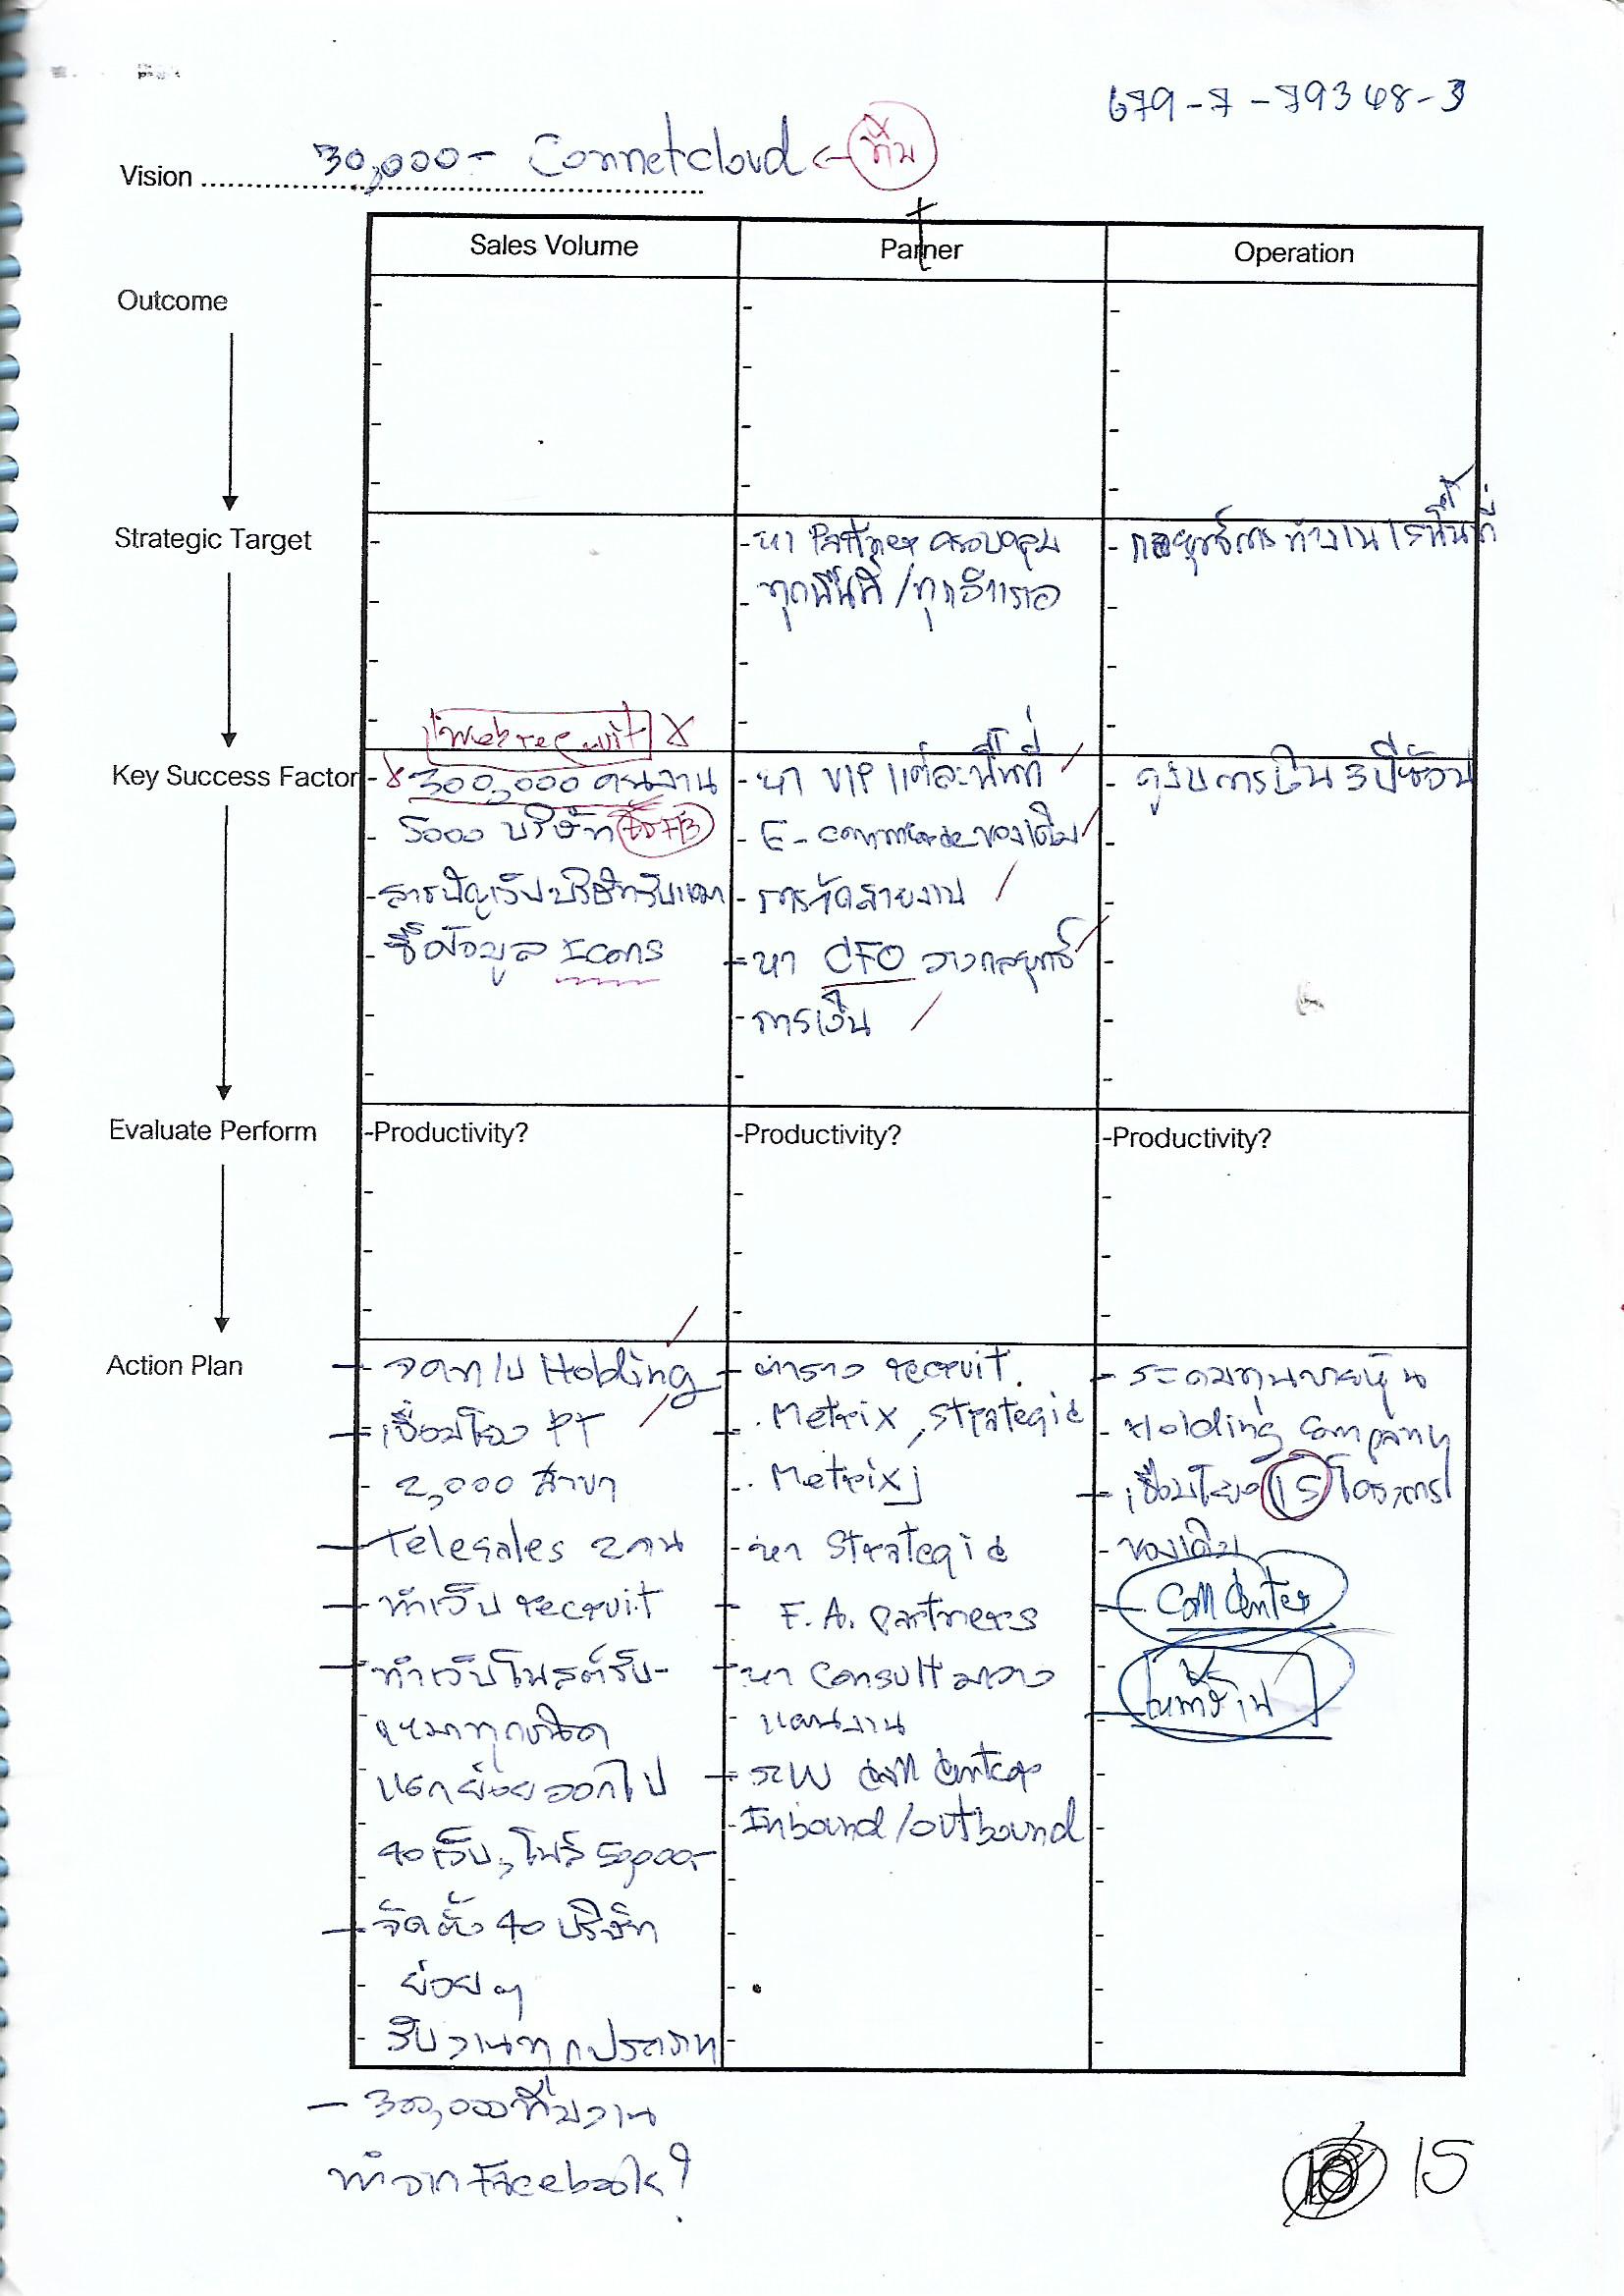 679-7-79348-3
Vision 30,000- Connetcloud ← ทีม
Sales Volume
Partner
Operation
Outcome
Strategic Target
- หา Partner ครอบคลุม
ทุกพื้นที่/ทุกอำเภอ
- กลยุทธ์การทำงาน 15 พื้นที่
Key Success Factor
Web recruit
- 300,000 คนงาน
5000 บริษัท
ซื้อข้อมูล Icons
- หา VIP แต่ละพื้นที่
- E-commerce ของเดิม
- การจัดสายงาน
- หา CFO วางกลยุทธ์
- การเงิน
- ดูงบการเงิน 3 ปีย้อน
Evaluate Perform
-Productivity?
-Productivity?
-Productivity?
Action Plan
- จดทบ Holding
- เชื่อมโยง PT
2,000 สาขา
- Telesales 2 คน
- ทำเว็บ recruit
- ทำเว็บโพสต์รับ-
เหมาทุกชนิด
แยกย่อยออกไป
40 เว็บ, โพส์ 50,000.-
- จัดตั้ง 40 บริษัท
ย่อยๆ
รับงานทุกประเภท
- 300,000 ทีมงาน
ทำจาก Facebook?
- ตาราง recruit.
. Metrix, Strategic
. Metrix
- หา Strategic
F.A. partners
- หา Consult มาวาง
แผนงาน
- ระบบ Call Center
Inbound/outbound
- ระดมทุนขายหุ้น
- Holding Company
- เชื่อมโยง 15 โครงการ
- ของเดิม
Call Center
15